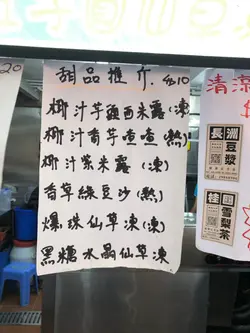 20
甜品推介 $10
椰汁芋頭西米露(凍)
椰汁香芋喳喳(熱)
椰汁紫米露(凍)
香草綠豆沙(熱)
爆珠仙草凍(凍)
黑糖水晶仙草凍
清涼
長洲
豆漿
桂圓
雪梨茶